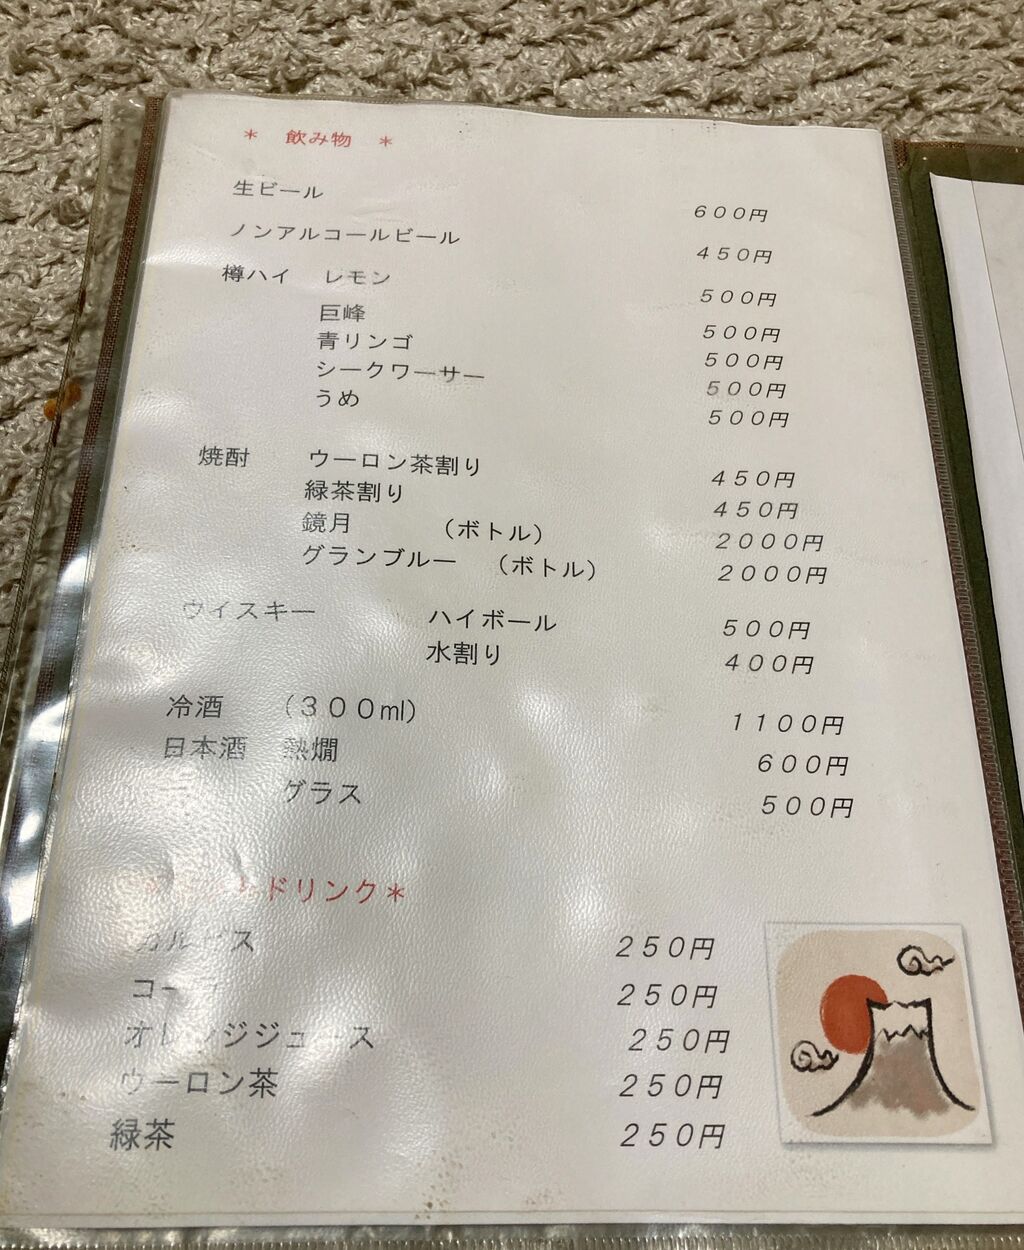 ＊ 飲み物 ＊
生ビール 600円
ノンアルコールビール 450円
樽ハイ レモン 500円
巨峰 500円
青リンゴ 500円
シークワーサー 500円
うめ 500円
焼酎 ウーロン茶割り 450円
緑茶割り 450円
鏡月 （ボトル） 2000円
グランブルー （ボトル） 2000円
ウイスキー ハイボール 500円
水割り 400円
冷酒 （300ml） 1100円
日本酒 熱燗 600円
グラス 500円
ドリンク＊
カルピス 250円
250円
オレンジジュース 250円
ウーロン茶 250円
緑茶 250円